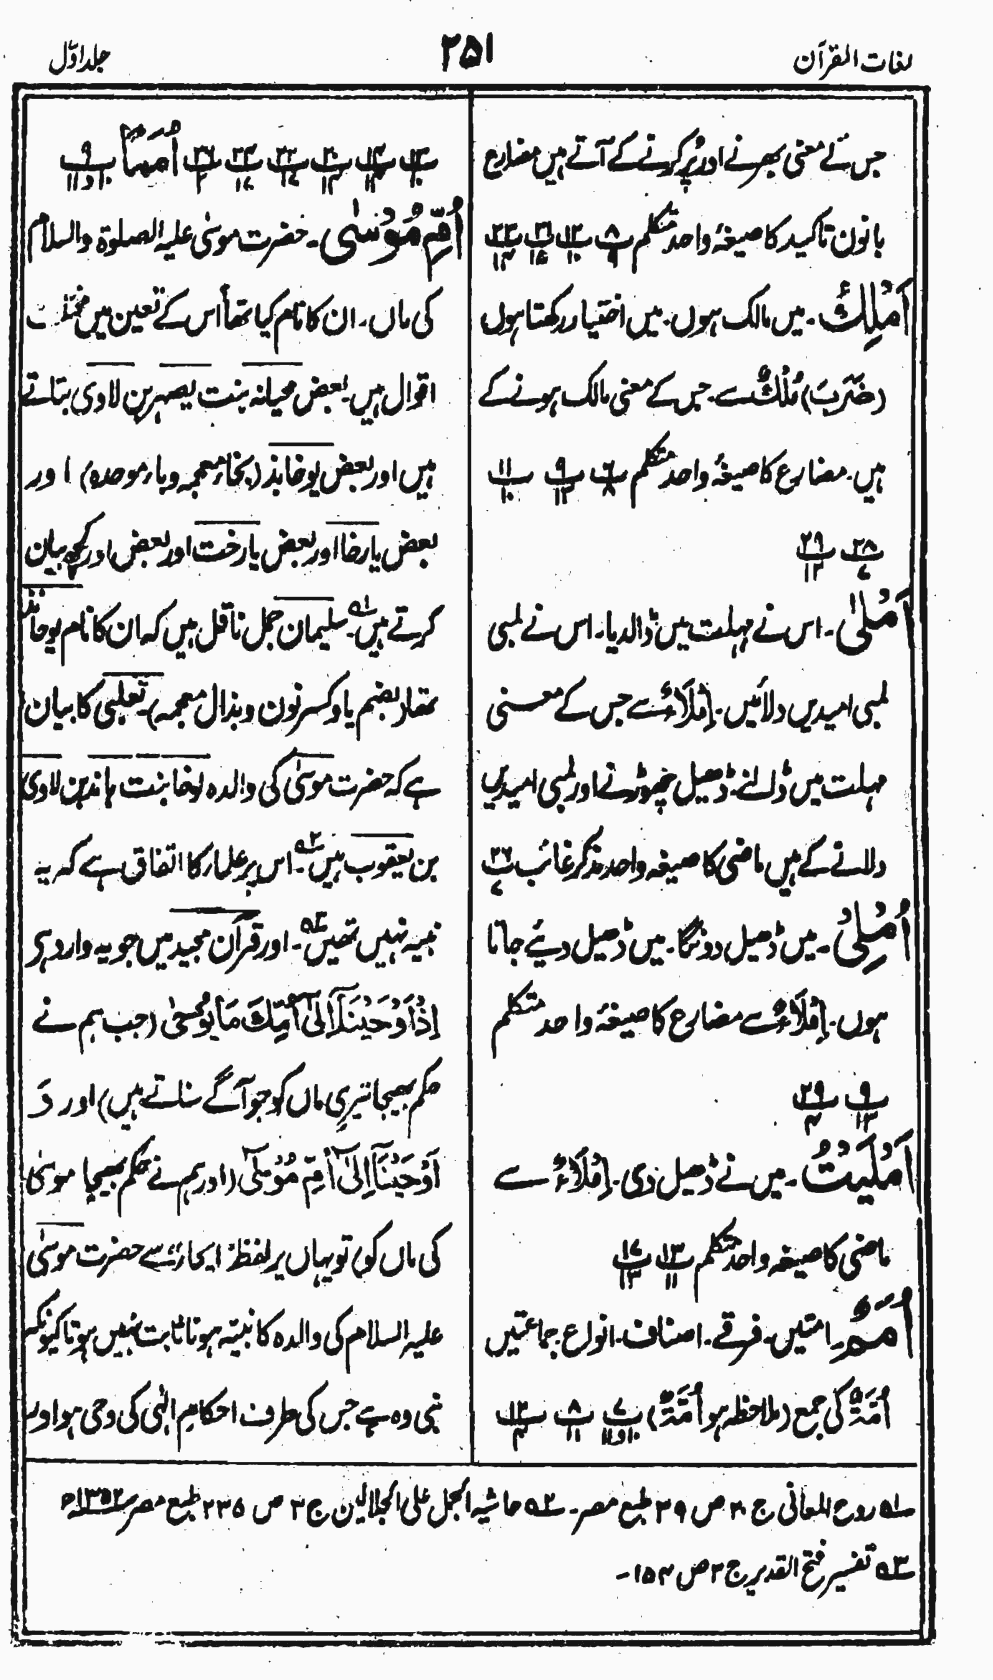 لغات القرآن
۲۵۱
جلد اوّل
جس کے معنی بھرنے اور پُر کرنے کے آتے ہیں مضارع
بانون تاکید کا صیغۂ واحد متکلم پ۸ ۹ پ۱۲ ۱۰ پ۲۱ ۱۵ پ۲۳ ۱۴
اَمْلِكُ۔ میں مالک ہوں۔ میں اختیار رکھتا ہوں
(ضَرَبَ) مُلْكٌ سے۔ جس کے معنی مالک ہونے کے
ہیں۔ مضارع کا صیغۂ واحد متکلم پ۶ ۸ پ۹ ۱۳ پ۱۱ ۱۰
پ۲۸ ۷ پ۲۹ ۱۲
اَمْلٰى۔ اس نے مہلت میں ڈالدیا۔ اس نے لمبی
لمبی امیدیں دلائیں۔ اِمْلَاءٌ سے جس کے معنی
مہلت میں ڈالنے۔ ڈھیل چھوڑنے اور لمبی امیدیں
دلانے کے ہیں ماضی کا صیغہ واحد مذکر غائب پ۲۶ ۷
اُمْلِیْ۔ میں ڈھیل دونگا۔ میں ڈھیل دیئے جاتا
ہوں۔ اِمْلَاءٌ سے مضارع کا صیغۂ واحد متکلم
پ۹ ۱۳ پ۲۹ ۴
اَمْلَیْتُ۔ میں نے ڈھیل دی۔ اِمْلَاءٌ سے
ماضی کا صیغہ واحد متکلم پ۱۳ ۱۱ پ۱۷ ۱۳
اُمَمٌ۔ امتیں۔ فرقے۔ اصناف۔ انواع۔ جماعتیں
اُمَّةٌ کی جمع (ملاحظہ ہو اُمَّةٌ) پ۷ ۱۰ و ۱۱ پ۸ ۱۱ پ۱۲ ۴
پ۱۳ ۱۰ پ۱۴ ۱۴ پ۲۰ ۱۴ پ۲۲ ۱۷ پ۲۴ ۶ پ۲۶ ۲ اُمَمًا پ۹ ۱۰ و ۱۱
اُمِّ مُوْسٰی۔ حضرت موسیٰ علیہ الصلوۃ والسلام
کی ماں۔ ان کا نام کیا تھا اس کے تعین میں مختلف
اقوال ہیں۔ بعض محیانہ بنت یصہر بن لاوی بتاتے
ہیں اور بعض یوخابذ (بخاء معجمہ وباء موحدہ) اور
بعض یارخا اور بعض یارخت اور بعض اور کچھ بیان
کرتے ہیں۱ۤ۔ سلیمان جمل ناقل ہیں کہ ان کا نام یوحانذ
تھا (بضم یا وکسر نون وبذال معجمہ)۔ ثعلبی کا بیان
ہے کہ حضرت موسیٰ کی والدہ لوخا بنت ہاند بن لاوی
بن یعقوب ہیں۲ۤ۔ اس پر علمار کا اتفاق ہے کہ یہ
نبیہ نہیں تھیں۳ۤ۔ اور قرآن مجید میں جو یہ وارد ہے
اِذْ اَوْحَیْنَا اِلٰی اُمِّكَ مَا یُوْحٰی (جب ہم نے
حکم بھیجا تیری ماں کو جو آگے سناتے ہیں) اور وَ
اَوْحَیْنَا اِلٰی اُمِّ مُوْسٰی (اور ہم نے حکم بھیجا موسیٰ کی
کی ماں کو) تو یہاں پر لفظ ایحارٌ سے حضرت موسیٰ
علیہ السلام کی والدہ کا نبیہ ہونا ثابت نہیں ہوتا کیونکہ
نبی وہ ہے جس کی طرف احکام الٰہی کی وحی ہو اور
۱ۤ روح المعانی ج ۲۰ ص ۳۹ طبع مصر۔ ۲ۤ حاشیہ الجمل علی الجلالین ج ۳ ص ۲۳۵ طبع مصر ۱۳۵۲ھ
۳ۤ تفسیر فتح القدیر ج ۴ ص ۱۵۴۔